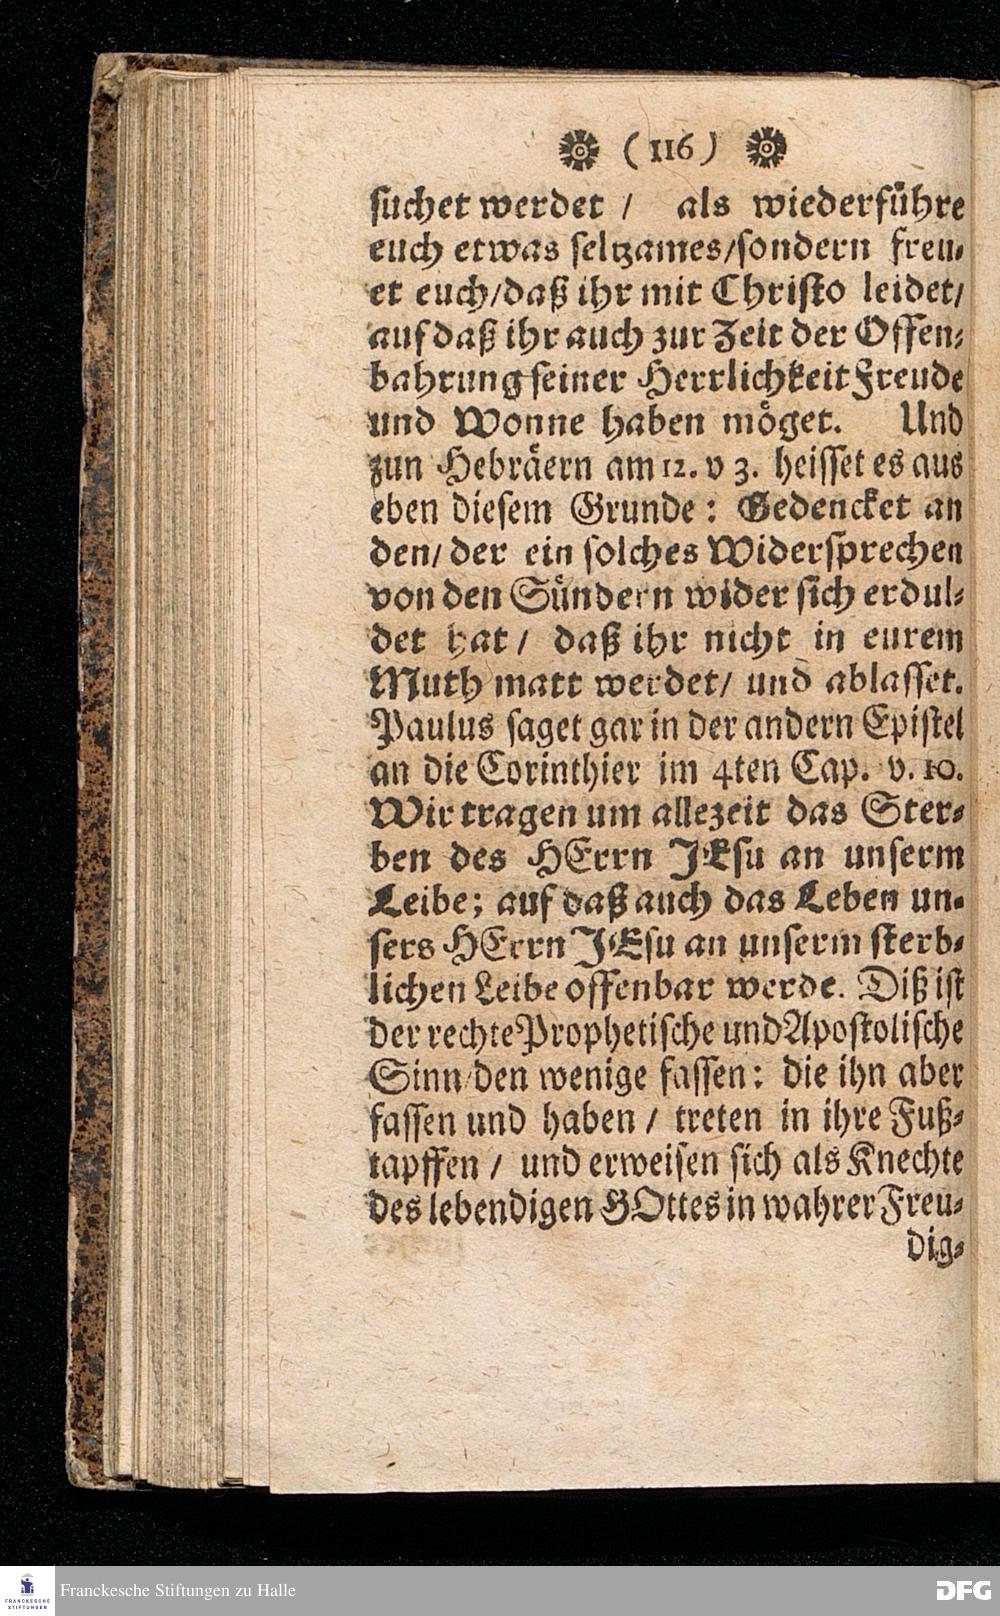 (116)
suchet werdet / als wiederführe
euch etwas seltzames/sondern freu-
et euch/daß ihr mit Christo leidet/
auf daß ihr auch zur Zeit der Offen-
bahrung seiner Herrlichkeit Freude
und Wonne haben möget. Und
zun Hebräern am 12. v 3. heisset es aus
eben diesem Grunde: Gedencket an
den/ der ein solches Widersprechen
von den Sündern wider sich erdul-
det hat / daß ihr nicht in eurem
Muth matt werdet/ und ablasset.
Paulus saget gar in der andern Epistel
an die Corinthier im 4ten Cap. v. 10.
Wir tragen um allezeit das Ster-
ben des HErrn JEsu an unserm
Leibe; auf daß auch das Leben un-
sers HErrn JEsu an unserm sterb-
lichen Leibe offenbar werde. Diß ist
der rechte Prophetische und Apostolische
Sinn/den wenige fassen: die ihn aber
fassen und haben / treten in ihre Fuß-
tapffen / und erweisen sich als Knechte
des lebendigen GOttes in wahrer Freu-
dig-
FRANCKESCHE
STIFTUNGEN
Franckesche Stiftungen zu Halle
DFG